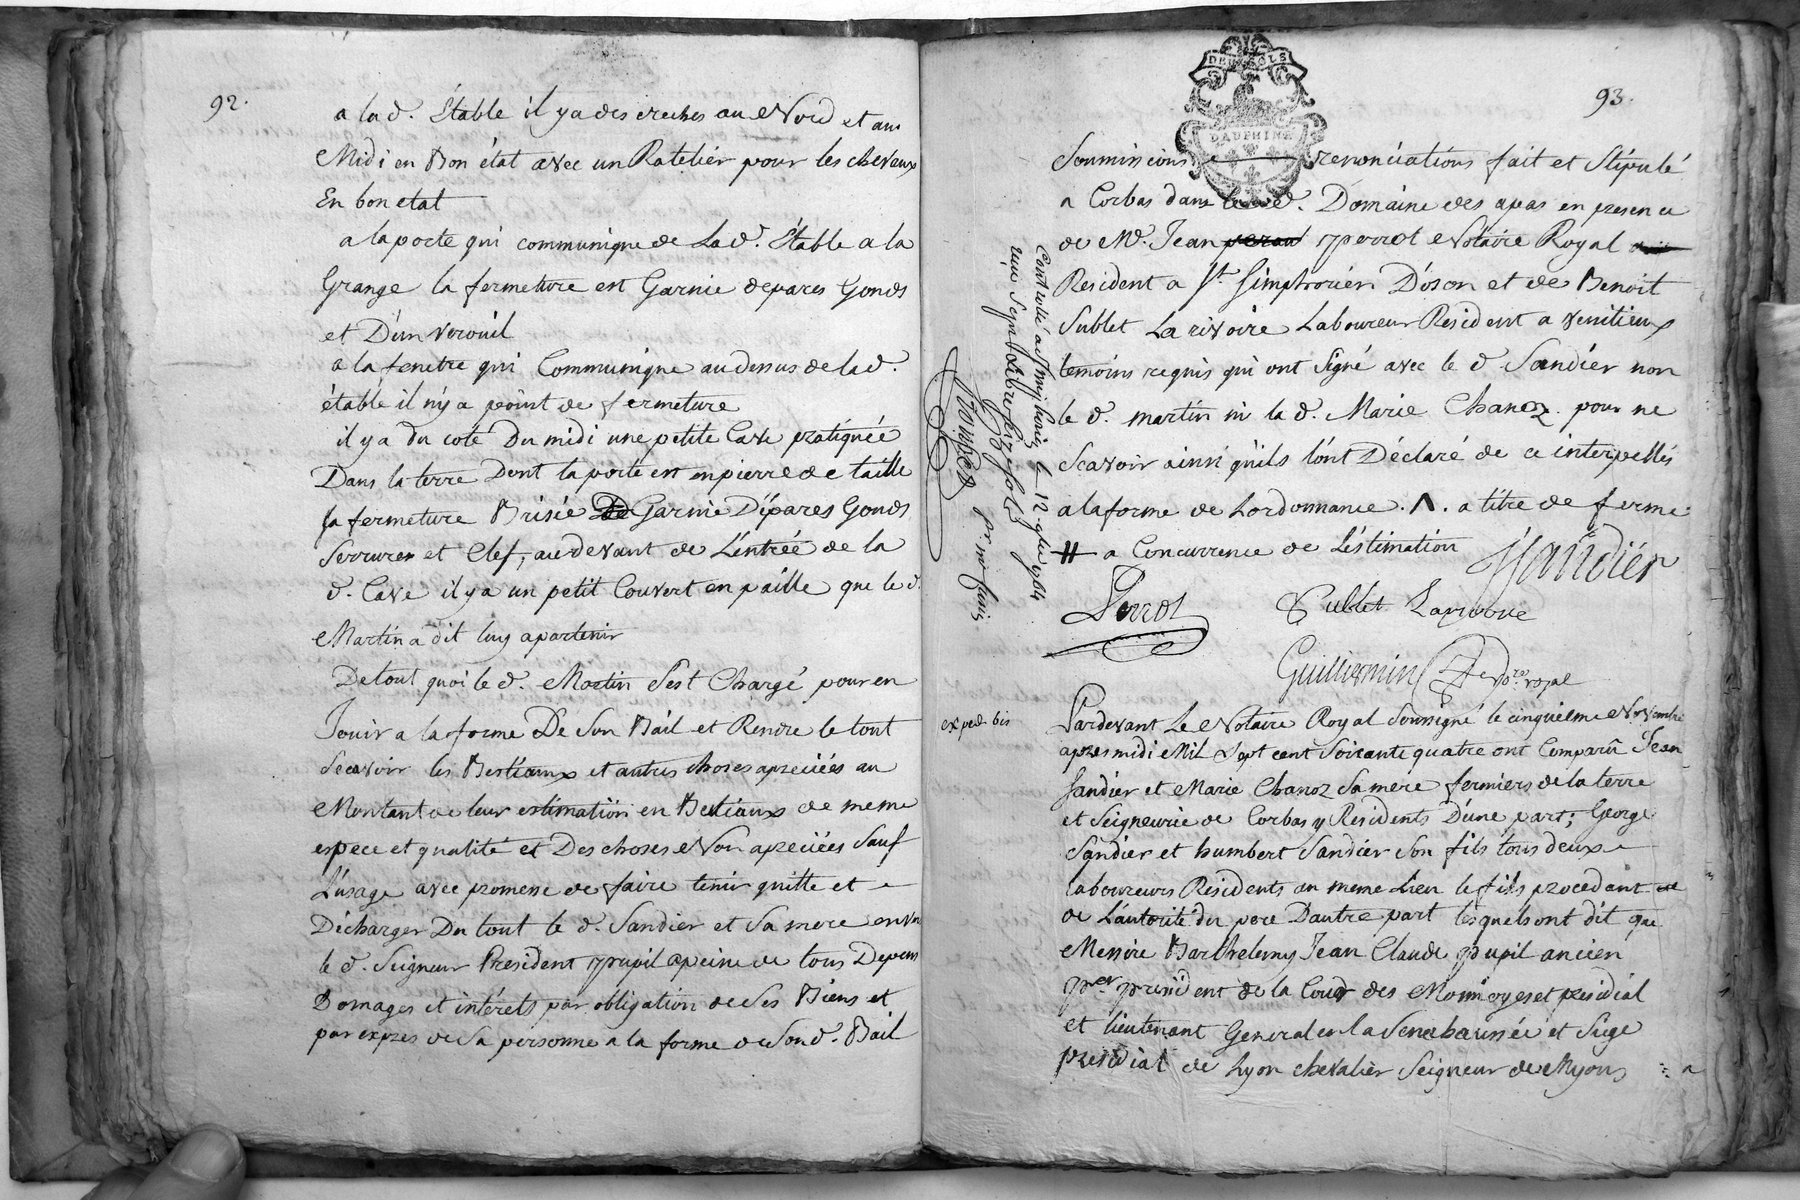 92.
a la d. Etable il ya des creches au Nord et au
Midi en Bon état avec un Ratelier pour les chevaux
En bon etat
a la porte qui communique de La d. Etable a la
Grange la fermeture est Garnie depares Gonds
et D'un verouil
a la fenetre qui Communique audessus de la d.
étable il n'y a point de fermeture
il y a du coté Du midi une petite Cave pratiquée
Dans la terre Dont la porte est en pierre de taille
la fermeture Brisée Garnie D'épares Gonds
Serrurer et Clef, audevant de L'entrée de la
d. Cave il ya un petit Couvert en paille que le d.
Martin a dit luy apartenir
De tout quoi le d. Martin s'est Chargé pour en
Jouir a la forme De Son Bail et Rendre le tout
Scavoir les Bestiaux et autres choses apreciées au
Montant de leur estimation en Bestiaux de meme
espece et qualité et Des choses Non apreciées Sauf
L'usage avec promesse de faire tenir quitte et
Décharger Du tout le d. Sandier et Sa mere envers
le d. Seigneur President pupil apeine de tous Depens
Domages et intérets par obligation de Ses Biens et
par expres de Sa personne a la forme de Son d. Bail
93.
DEUX SOLS
DAUPHINE
Soumissions renonciations fait et Stipulé
a Corbas dans le d. Domaine des apas en presence
de Me. Jean perrot Notaire Royal
Resident a St. Simphorien D'oson et de Benoit
Sublet La rivoire Laboureur Resident a venitieux
temoins requis qui ont Signé avec le d. Sandier non
le d. martin ni la d. Marie Chanoz pour ne
Scavoir ainsi qu'ils l'ont Déclaré de ce interpellés
a la forme de Lordonnance. Λ. a titre de ferme
# a Concurrence de L'estimation
JSandiér
Perrot
Sublet Larivoire
Guilliermin
Nore. royal
Controllé a St simphorien le 12. 9bre 1764
exped. bis
Pardevant Le Notaire Royal Soussigné le cinquieme Novembre
apres midi Mil Sept cent Soixante quatre ont Comparû Jean
Sandier et Marie Chanoz Sa mere fermiers de la terre
et Seigneurie de Corbas y Residents D'une part; George
Sandier et humbert Sandier Son fils tous deux
laboureurs Residents au meme Lieu le fils procedant
de L'autorité du pere D'autre part lesquels ont dit que
Messire Barthelemy Jean Claude pupil ancien
per. president de la Cour des Monnoyes et presidial
et lieutenant General en la Senechaussée et Siege
presidial de Lyon chevalier Seigneur de Myons